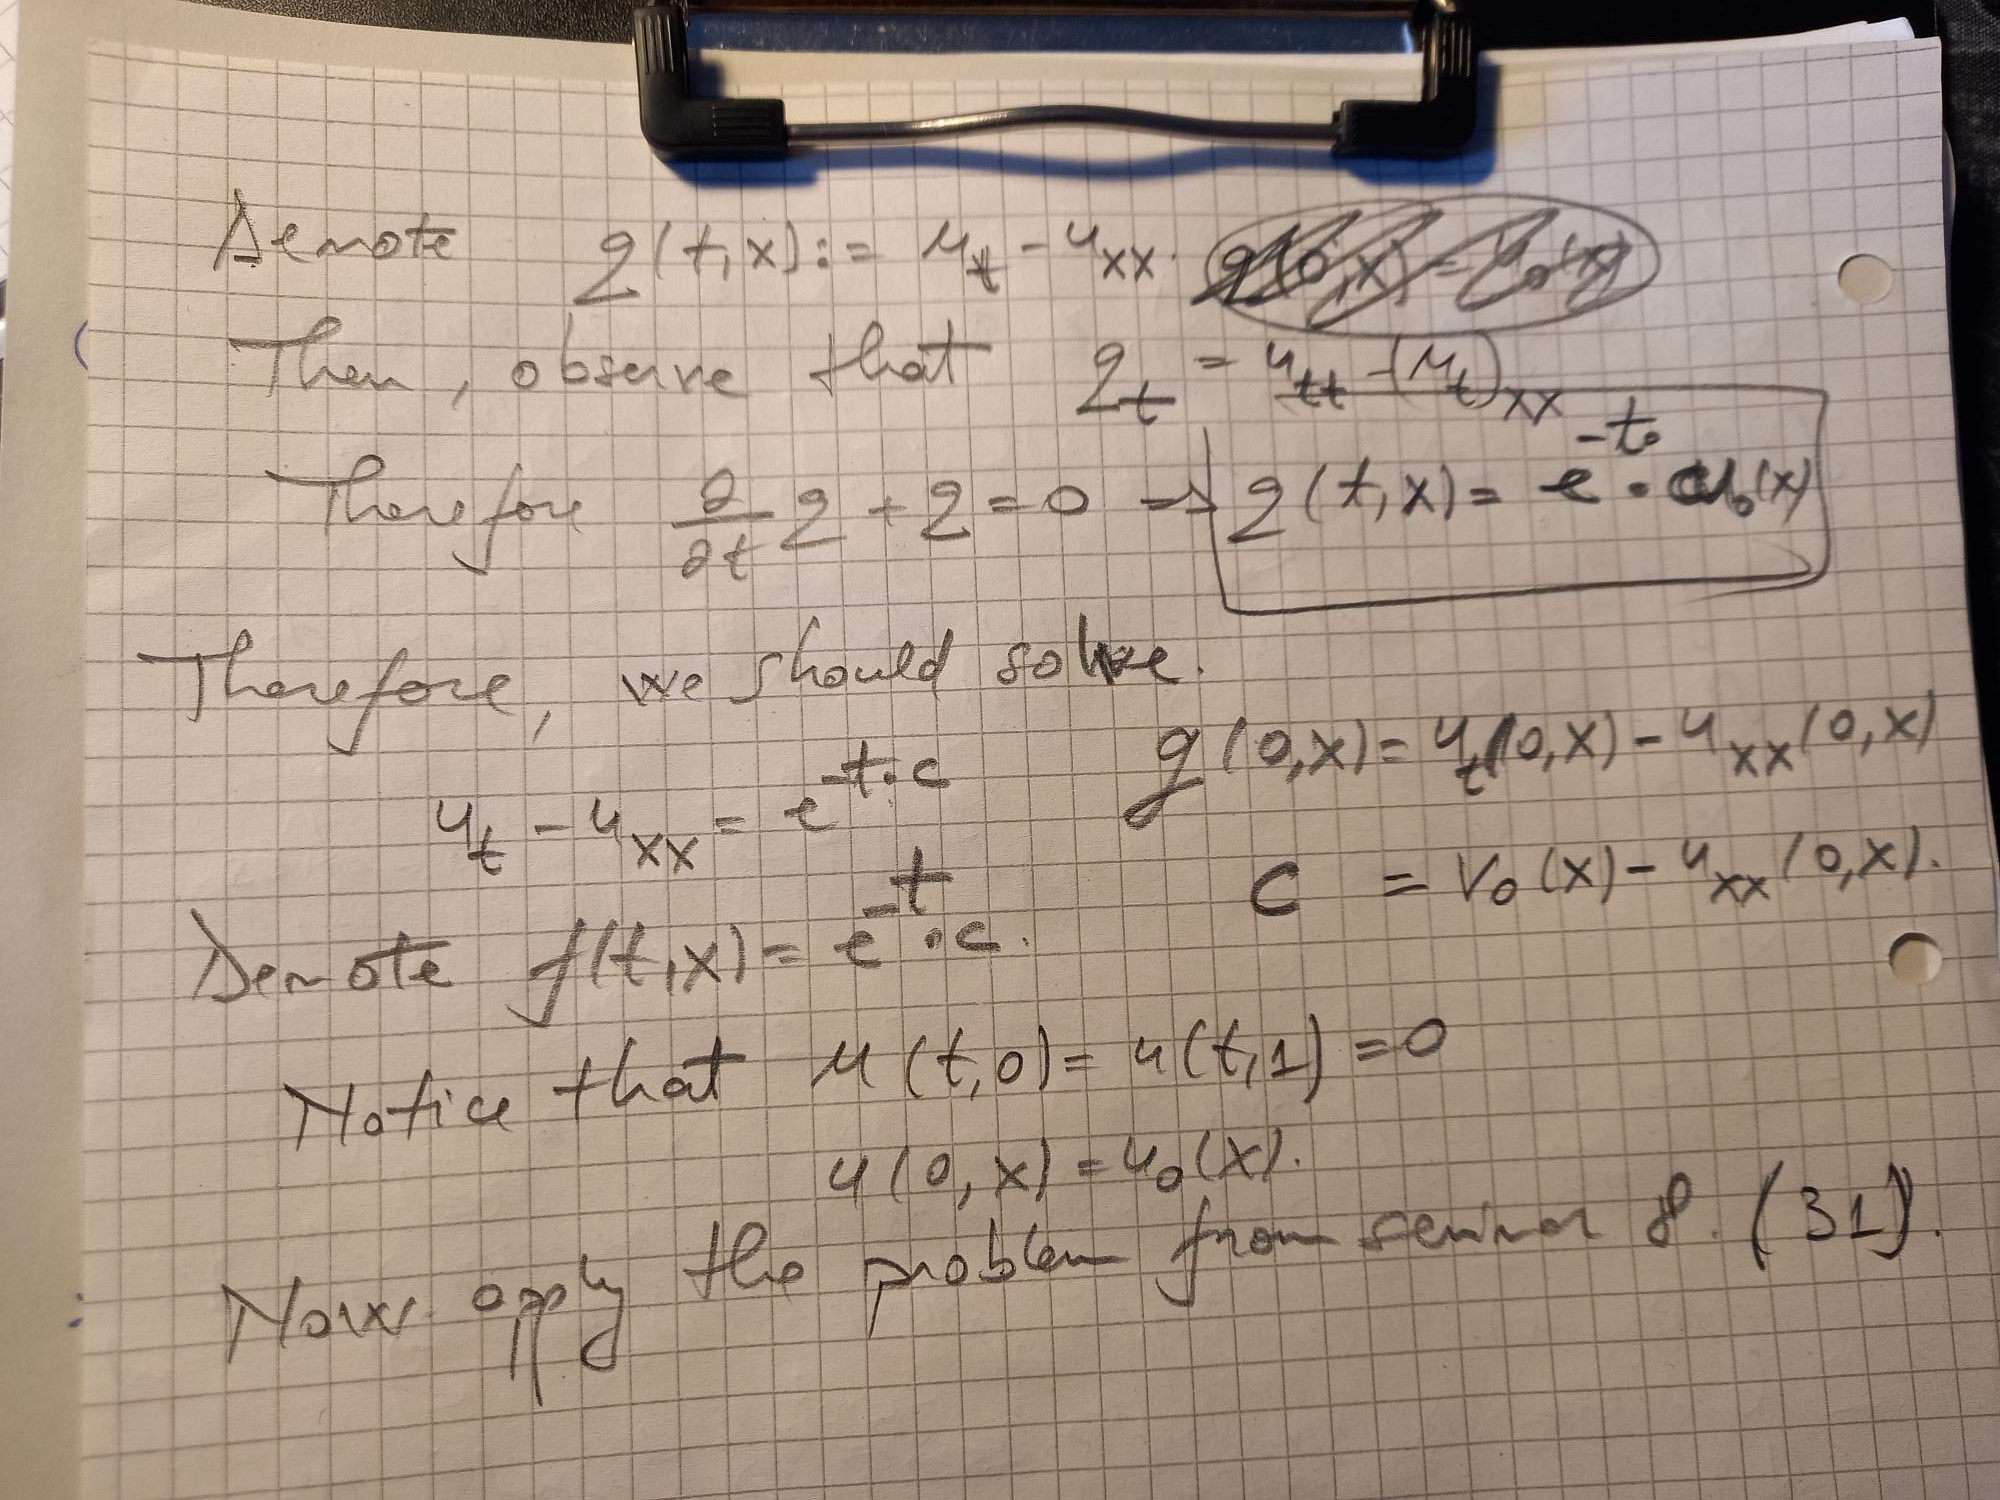 Denote g(t,x) := u_t - u_xx.
Then, observe that g_t = u_tt - (u_t)_xx
Therefore ∂/∂t g + g = 0 => g(t,x) = e^-t · u_0(x)
Therefore, we should solve.
g(0,x) = u_t(0,x) - u_xx(0,x)
u_t - u_xx = e^-t · c
c = v_0(x) - u_xx(0,x).
Denote f(t,x) = e^-t · c.
Notice that u(t,0) = u(t,1) = 0
u(0,x) = u_0(x).
Now apply the problem from seminar 8. (31).